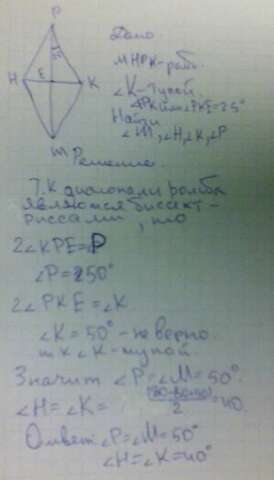 P
Дано
МНРК - ромб.
H E K
∠К - тупой.
∠РКЕ = 25°
Найти
∠M, ∠H, ∠K, ∠P
m
Решение.
Т.к диагонали ромба
являются биссект-
риссами, то
2∠KPE = ∠P
∠P = 50°
2∠PKE = ∠K
∠K = 50° - не верно.
т к ∠K - тупой.
Значит ∠P = ∠M = 50°.
∠H = ∠K = = 40.
2
Ответ: ∠P = ∠M = 50°
∠H = ∠K = 40°